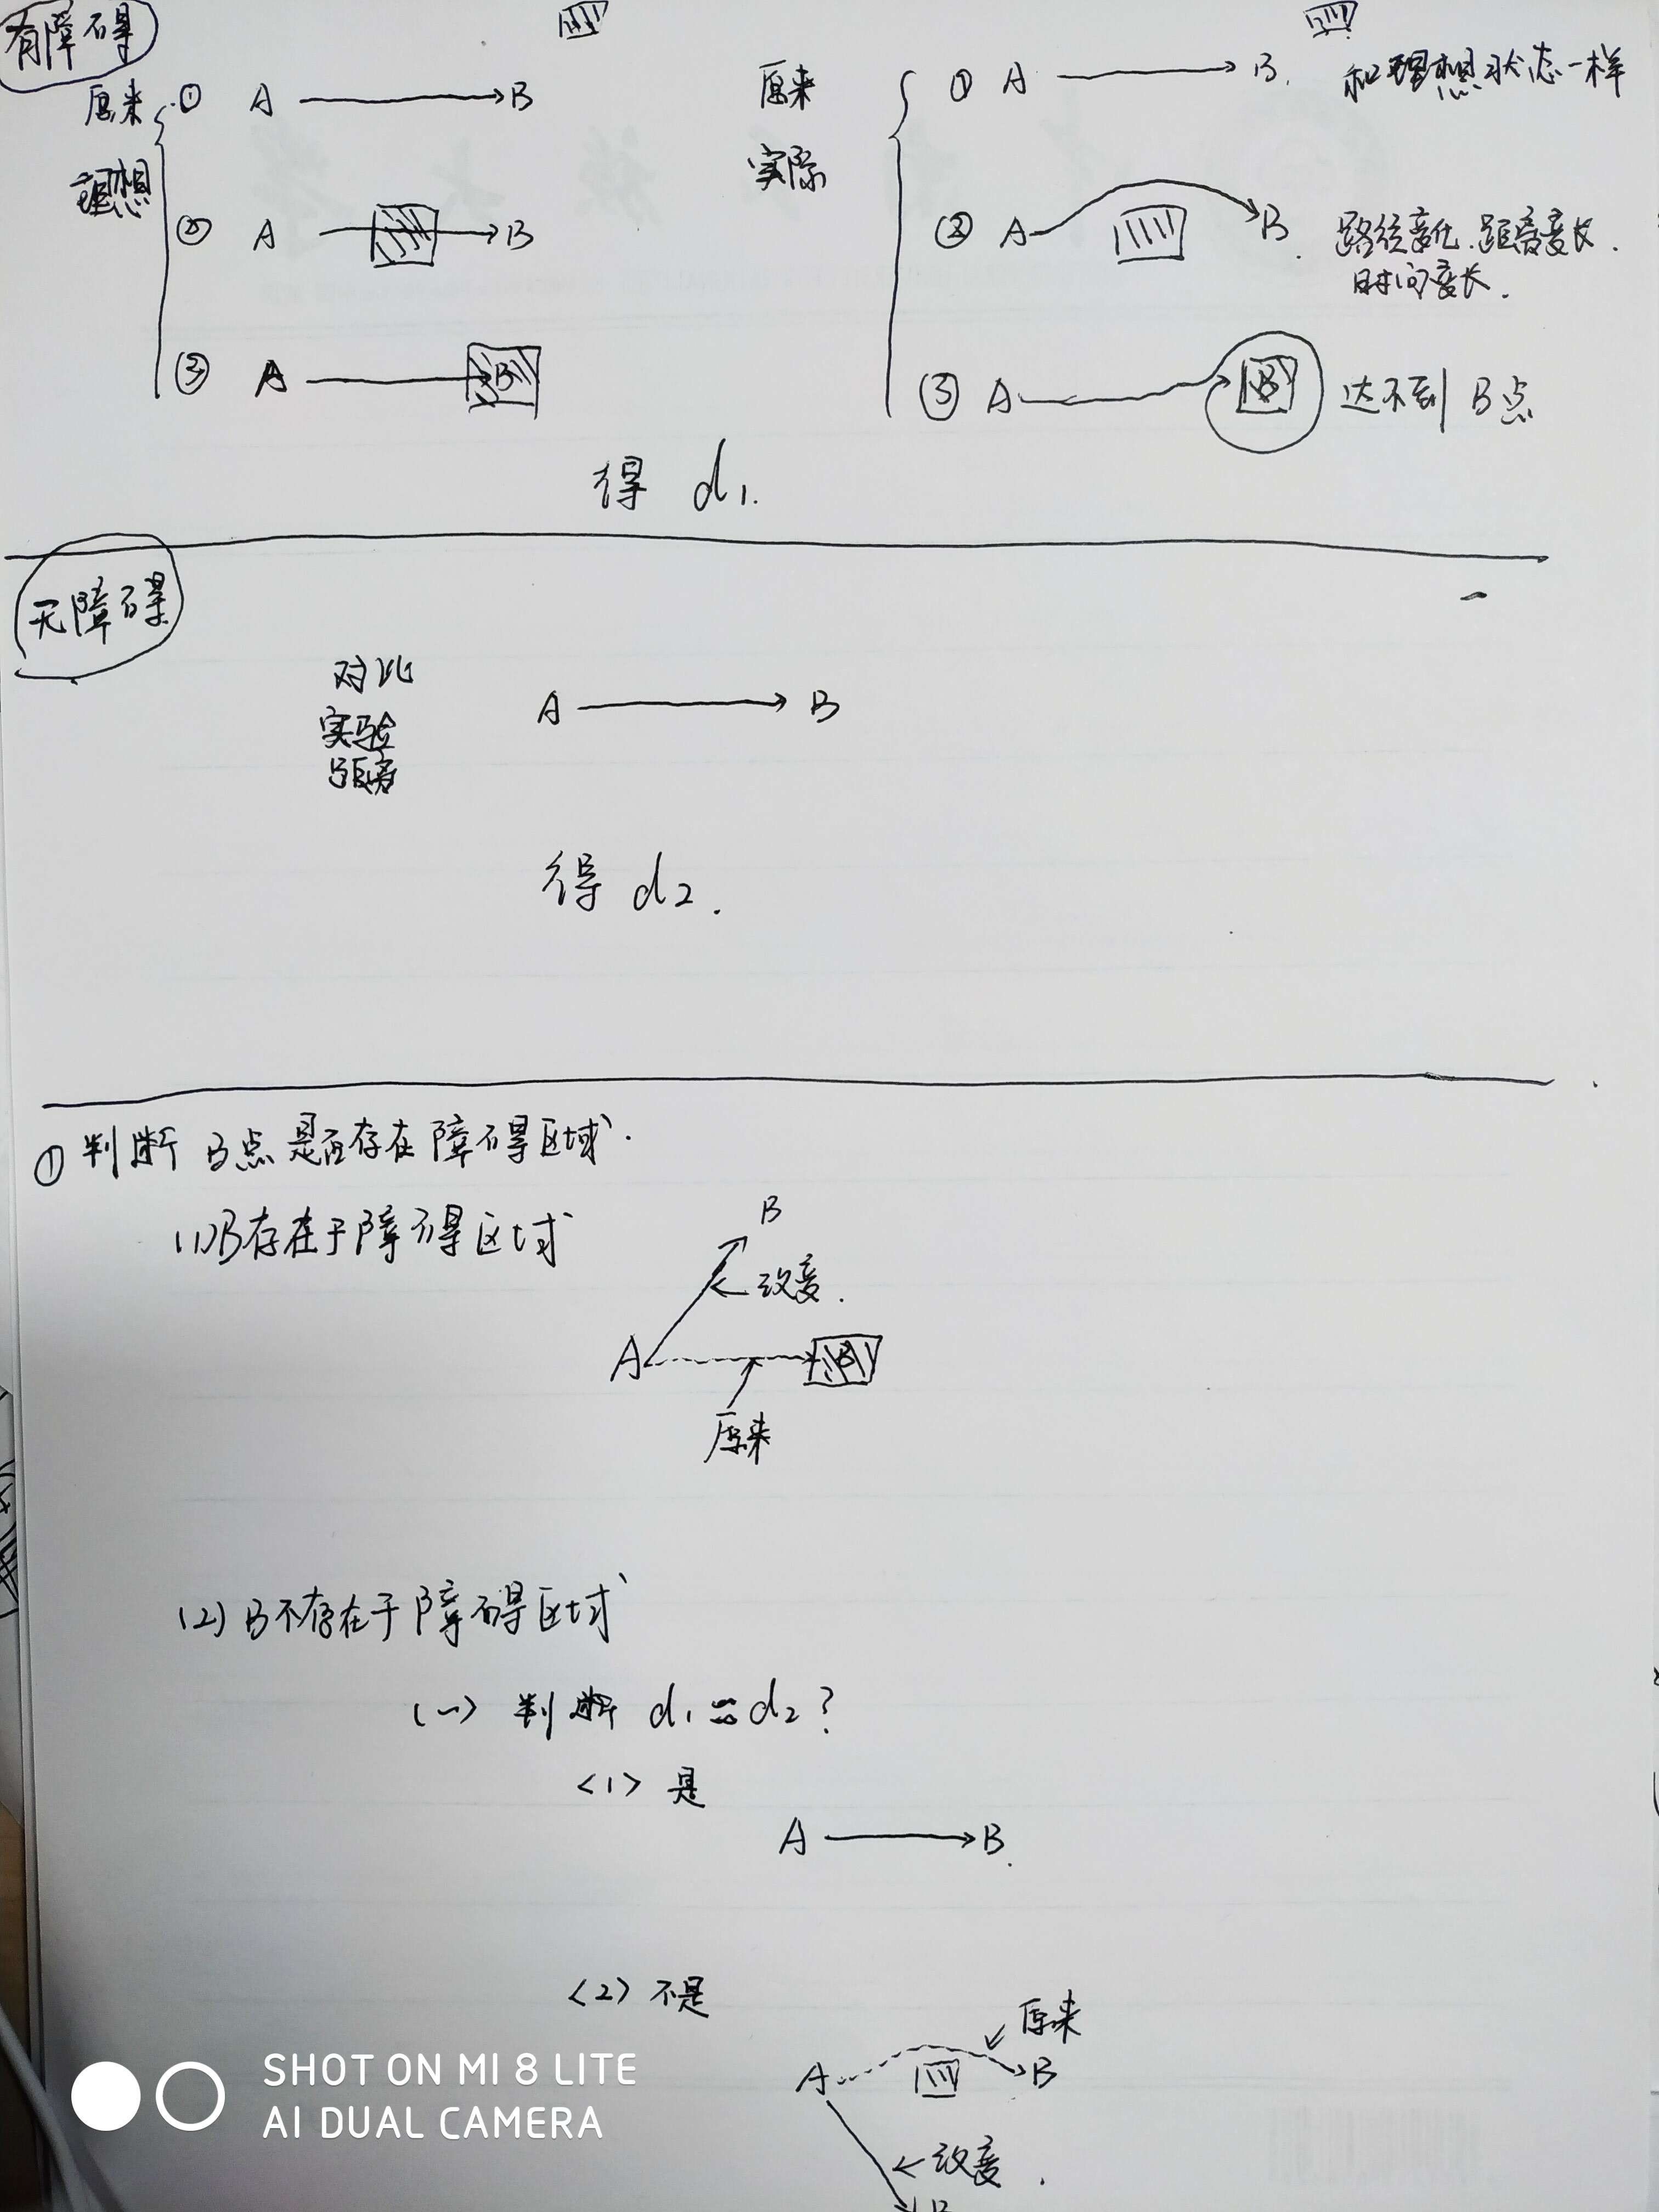 有障碍
原来
理想
① A B
② A B
③ A B
原来
实际
① A B. 和理想状态一样
② A B. 路径变化.距离变长.
时间变长.
③ A B 达不到 B点
得 d1.
无障碍
对比
实验
距离
A B
得 d2.
①判断 B点是否存在障碍区域.
(1)B存在于障碍区域
B
改变.
A B
原来
(2) B不存在于障碍区域
(一) 判断 d1 ≈ d2?
<1> 是
A B.
<2> 不是
原来
A B
改变.
B
SHOT ON MI 8 LITE
AI DUAL CAMERA